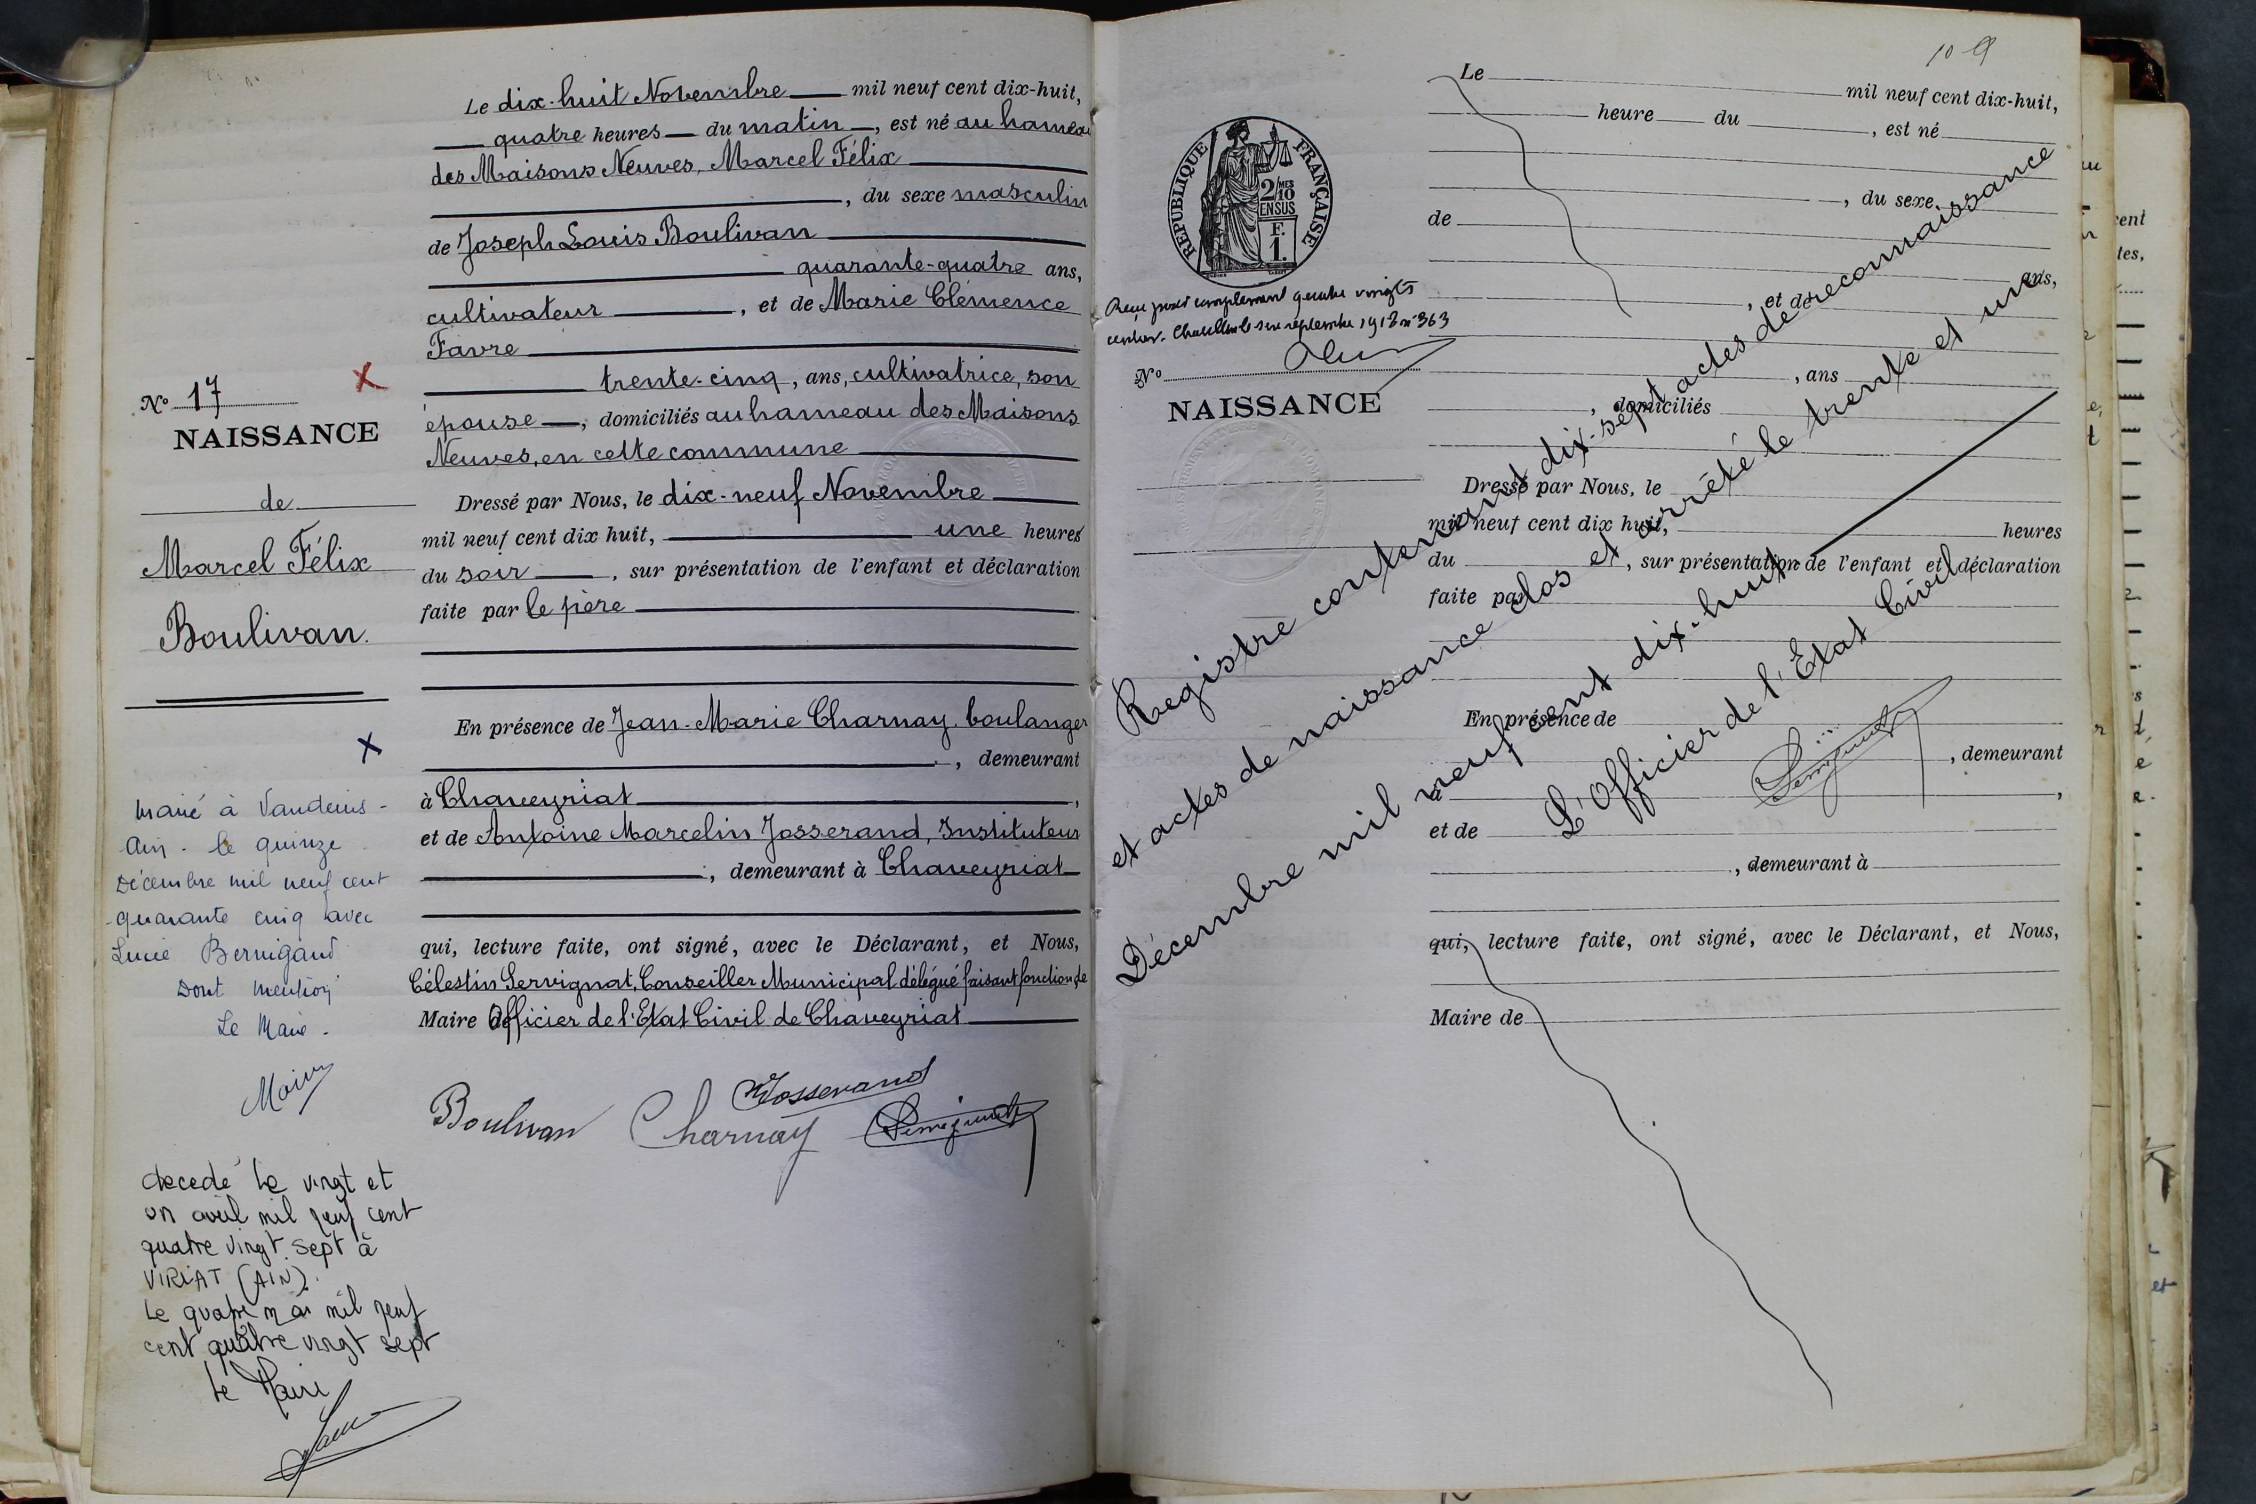 Le dix-huit Novembre mil neuf cent dix-huit,
quatre heures du matin, est né au hameau
des Maisons Neuves, Marcel Félix
, du sexe masculin
de Joseph Louis Boulivan
quarante-quatre ans,
cultivateur, et de Marie Clémence
Favre
trente-cinq, ans, cultivatrice, son
épouse, domiciliés au hameau des Maisons
Neuves, en cette commune
Dressé par Nous, le dix-neuf Novembre
mil neuf cent dix huit, une heures
du soir, sur présentation de l'enfant et déclaration
faite par le père
En présence de Jean-Marie Charnay, boulanger
, demeurant
à Chaveyriat,
et de Antoine Marcelin Josserand, Instituteur
, demeurant à Chaveyriat
qui, lecture faite, ont signé, avec le Déclarant, et Nous,
Célestin Servignat, Conseiller Municipal délégué faisant fonction de
Maire Officier de l'Etat Civil de Chaveyriat
Boulivan Charnay Josserand
No 17
NAISSANCE
de
Marcel Félix
Boulivan.
Marié à Vandeins -
Ain - le quinze
Décembre mil neuf cent
quarante cinq avec
Lucie Bernigaud
Dont mention
Le Maire -
décédé le vingt et
un avril mil neuf cent
quatre vingt sept à
VIRIAT (AIN).
Le quatre mai mil neuf
cent quatre vingt sept
Le Maire
10
RÉPUBLIQUE FRANÇAISE
2/10 MES
EN SUS
F.
1.
Reçu pour complément quatre vingts
centimes. septembre 1918 no 363
No
NAISSANCE
Le mil neuf cent dix-huit,
heure du, est né
, du sexe
de
ans,
, et de
, ans
, domiciliés
Dressé par Nous, le
mil neuf cent dix huit, heures
du, sur présentation de l'enfant et déclaration
faite par
En présence de
, demeurant
à,
et de
, demeurant à
qui, lecture faite, ont signé, avec le Déclarant, et Nous,
Maire de
Registre contenant dix-sept actes de reconnaissance
et actes de naissance clos et arrêté le trente et un
Décembre mil neuf cent dix-huit.
L'Officier de l'Etat Civil,